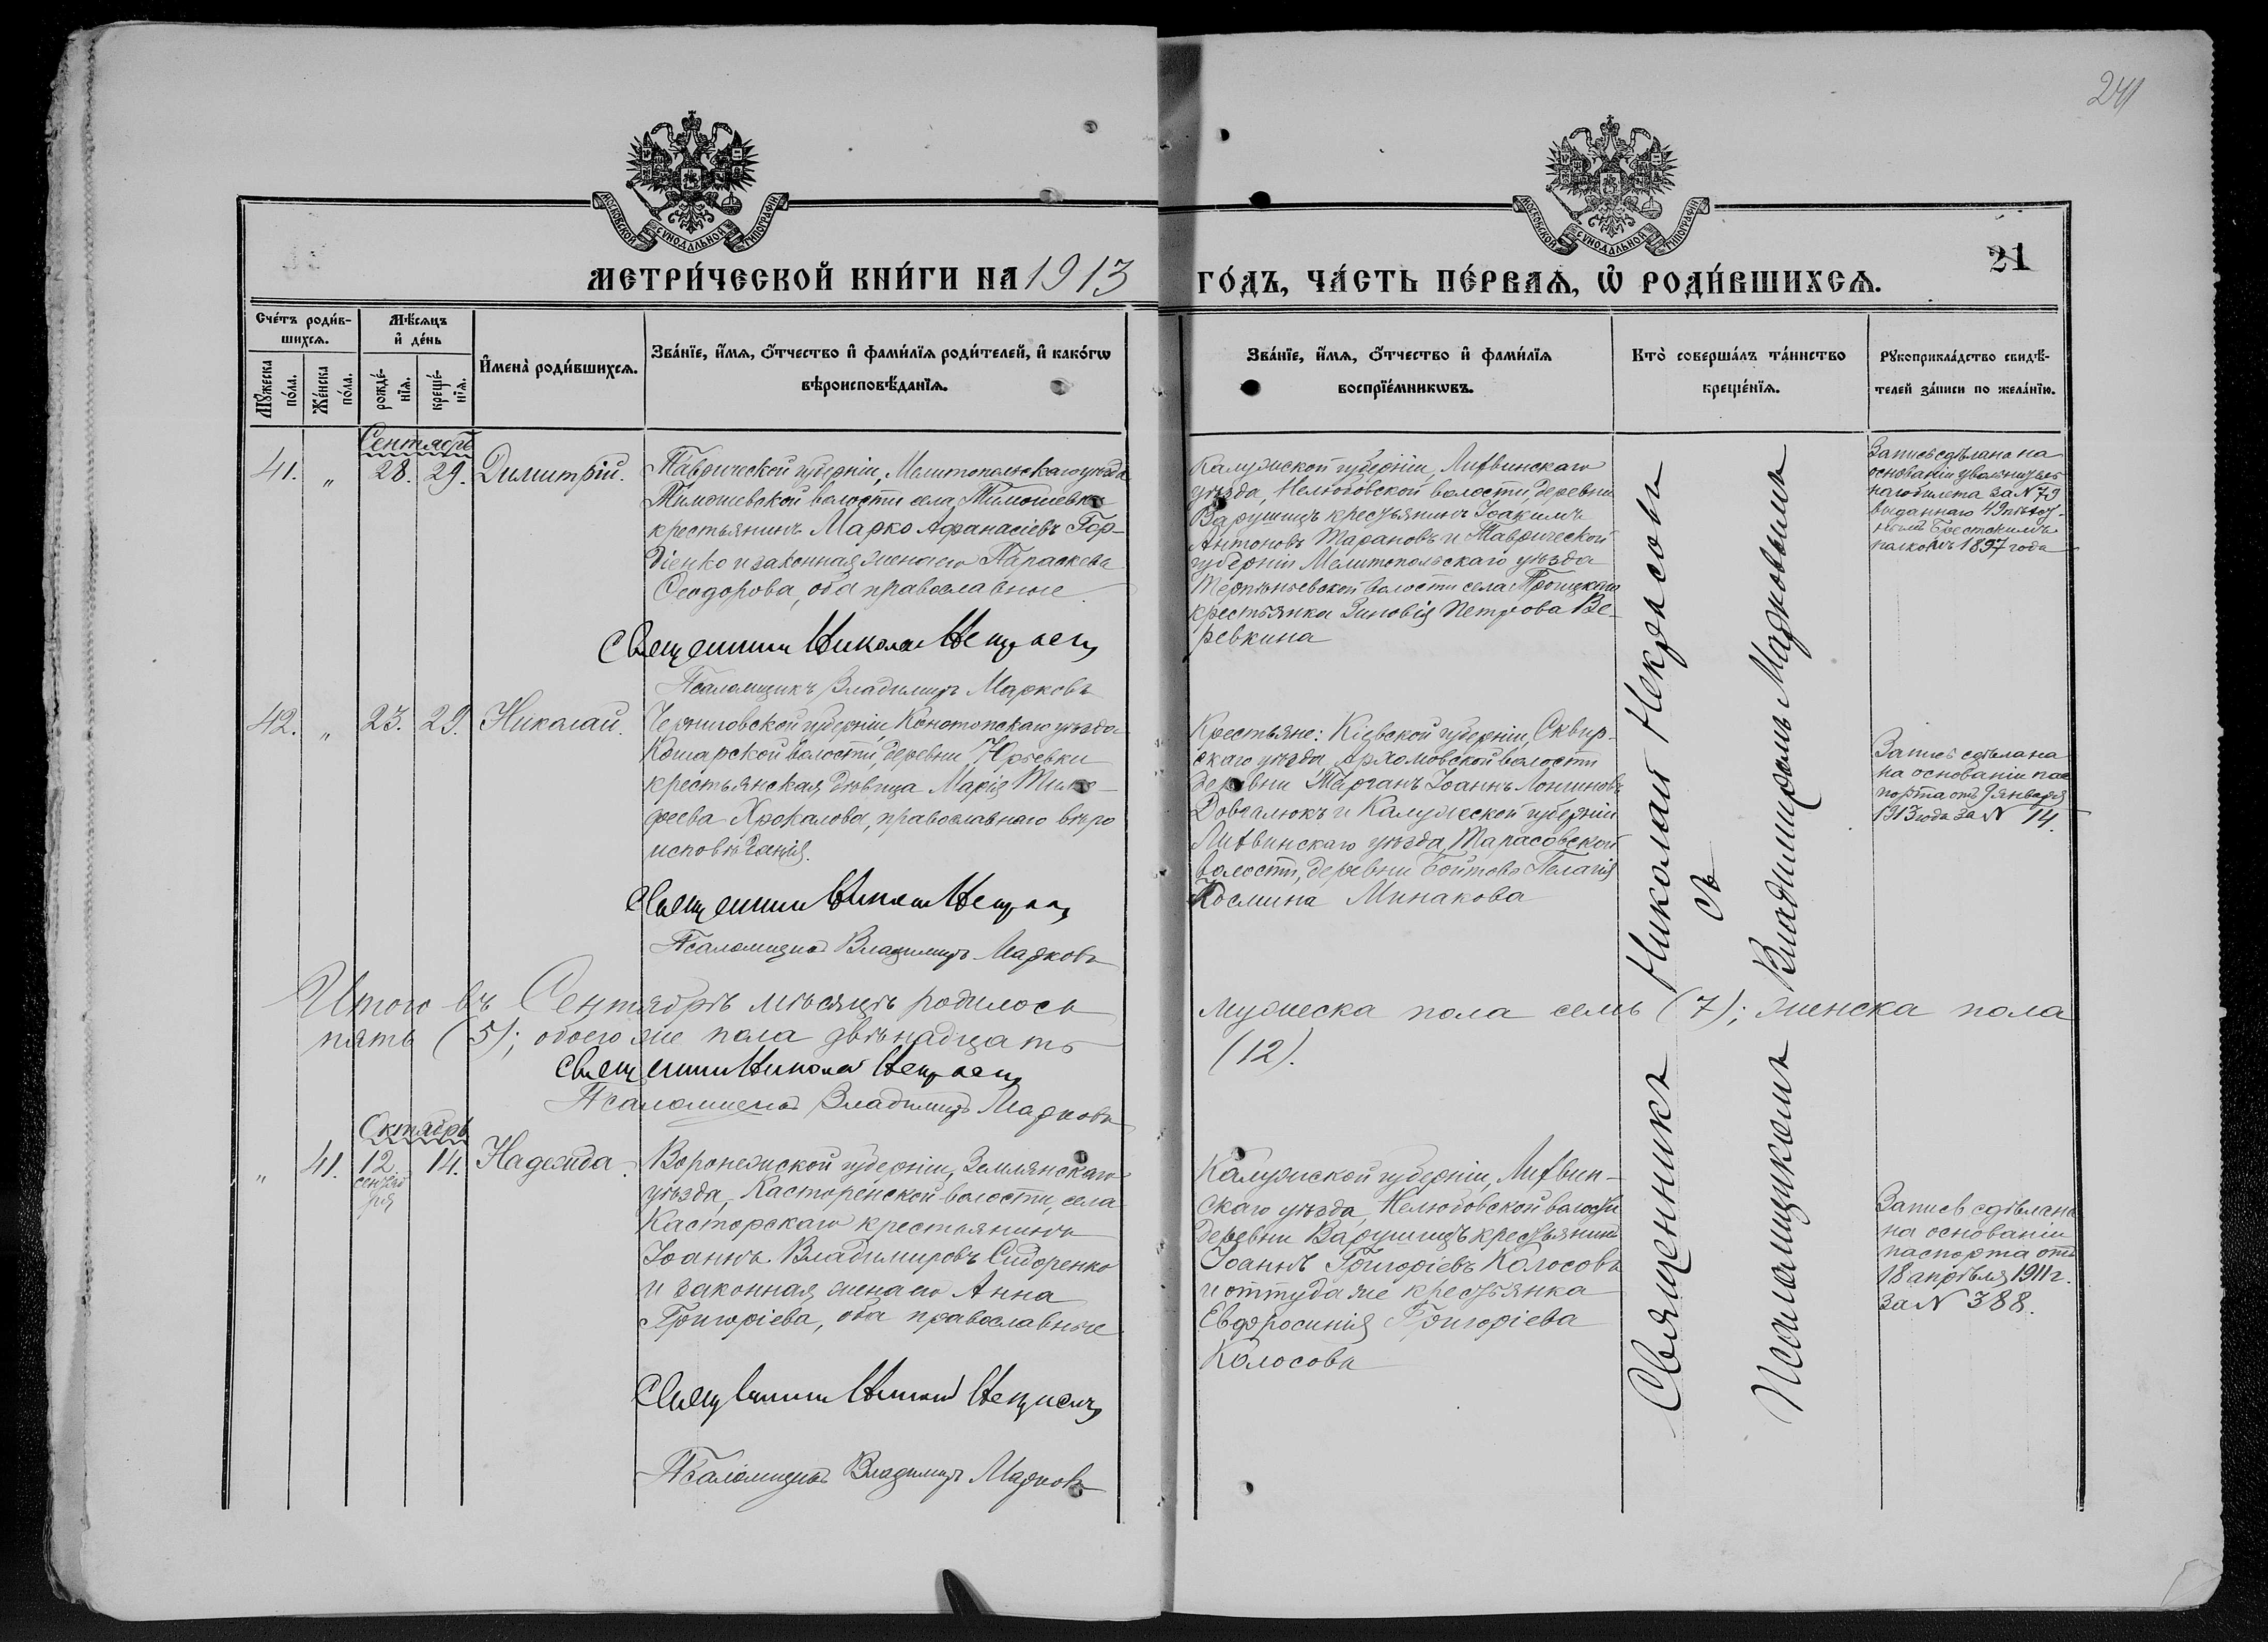 241
МОСКОВСКОЙ СѴНОДАЛЬНОЙ ТИПОГРАФІИ
МОСКОВСКОЙ СѴНОДАЛЬНОЙ ТИПОГРАФІИ
21
МЕТРИ́ЧЕСКОЙ КНИ́ГИ НА 1913
ГО́ДЪ, ЧА́СТЬ ПЕ́РВАѦ, Ѡ҆ РОДИ́ВШИХСѦ.
Сче́тъ роди́в-
шихсѧ.
Мѣ́сѧцъ
и҆ де́нь
Мꙋ́жеска
по́ла.
Же́нска
по́ла.
рожде́-
нїѧ.
креще́-
нїѧ.
И҆мена̀ роди́вшихсѧ.
Зва́нїе, и҆́мѧ, ѻ҆́тчество и҆ фами́лїѧ роди́телей, и҆ како́гѡ
вѣроисповѣ́данїѧ.
Зва́нїе, и҆́мѧ, ѻ҆́тчество и҆ фами́лїѧ
воспрїе́мникѡвъ.
Кто̀ соверша́лъ та́инство
креще́нїѧ.
Рꙋкоприкла́дство свидѣ́-
телей за́писи по жела́нїю.
Сентябрь
41. " 28. 29. Димитрій.
Таврической губерніи, Мелитопольскаго уѣзда
Тимошевской волости села Тимошевки
крестьянинъ Марко Афанасіевъ Гор-
діенко и законная жена его Параскева
Ѳеодорова, оба православные
Священникъ Николай Некрасовъ
Псаломщикъ Владимиръ Марковъ
Калужской губерніи, Лихвинскаго
уѣзда, Нелюбовской волости, деревни
Варушицъ крестьянинъ Іоакимъ
Антоновъ Тарановъ и Таврической
губерніи Мелитопольскаго уѣзда
Терпѣньевской волости села Троицкаго
крестьянка Зиновія Петрова Ве-
ревкина
Запись сдѣлана на
основаніи увольнитель
наго билета за N 73
выданнаго 49 пѣхот-
нымъ Брестскимъ
полкомъ 1897 года
42. " 23. 29. Николай.
Черниговской губерніи, Конотопскаго уѣзда
Кошарской волости, деревни Юрьевки
крестьянская дѣвица Марія Тимо-
феева Хрокалова, православнаго вѣро
исповѣданія.
Священникъ Николай Некрасовъ
Псаломщикъ Владимиръ Марковъ
Крестьяне: Кіевской губерніи, Сквир-
скаго уѣзда Архомовской волости
деревни Марганъ Іоаннъ Лонгиновъ
Довгалюкъ и Калужской губерніи
Лихвинскаго уѣзда, Тарасовской
волости, деревни Бойтовъ Пелагія
Космина Минакова
Запись сдѣлана
на основаніи пас
порта отъ 9 января
1913 года за N 14.
Итого въ Сентябрѣ мѣсяцѣ родилось
мужеска пола семь (7); женска пола
пять (5); обоего же пола двѣнадцать
(12).
Священникъ Николай Некрасовъ
Псаломщикъ Владимиръ Марковъ
Октябрь
" 41. 12. 14. Надежда.
сентяб
ря
Воронежской губерніи, Землянскаго
уѣзда, Касторенской волости, села
Касторскаго крестьянинъ
Іоаннъ Владимировъ Сидоренко
и законная жена его Анна
Григоріева, оба православные
Священникъ Николай Некрасовъ
Псаломщикъ Владимиръ Марковъ
Калужской губерніи, Лихвин-
скаго уѣзда, Нелюбовской волости
деревни Варушицъ крестьянинъ
Іоаннъ Григоріевъ Колосовъ
и оттуда же крестьянка
Евфросинія Григоріева
Колосова
Запись сдѣлана
на основаніи
паспорта отъ
18 апрѣля 1911 г.
за N 388.
Священникъ Николай Некрасовъ
съ
Псаломщикомъ Владимиромъ Марковымъ